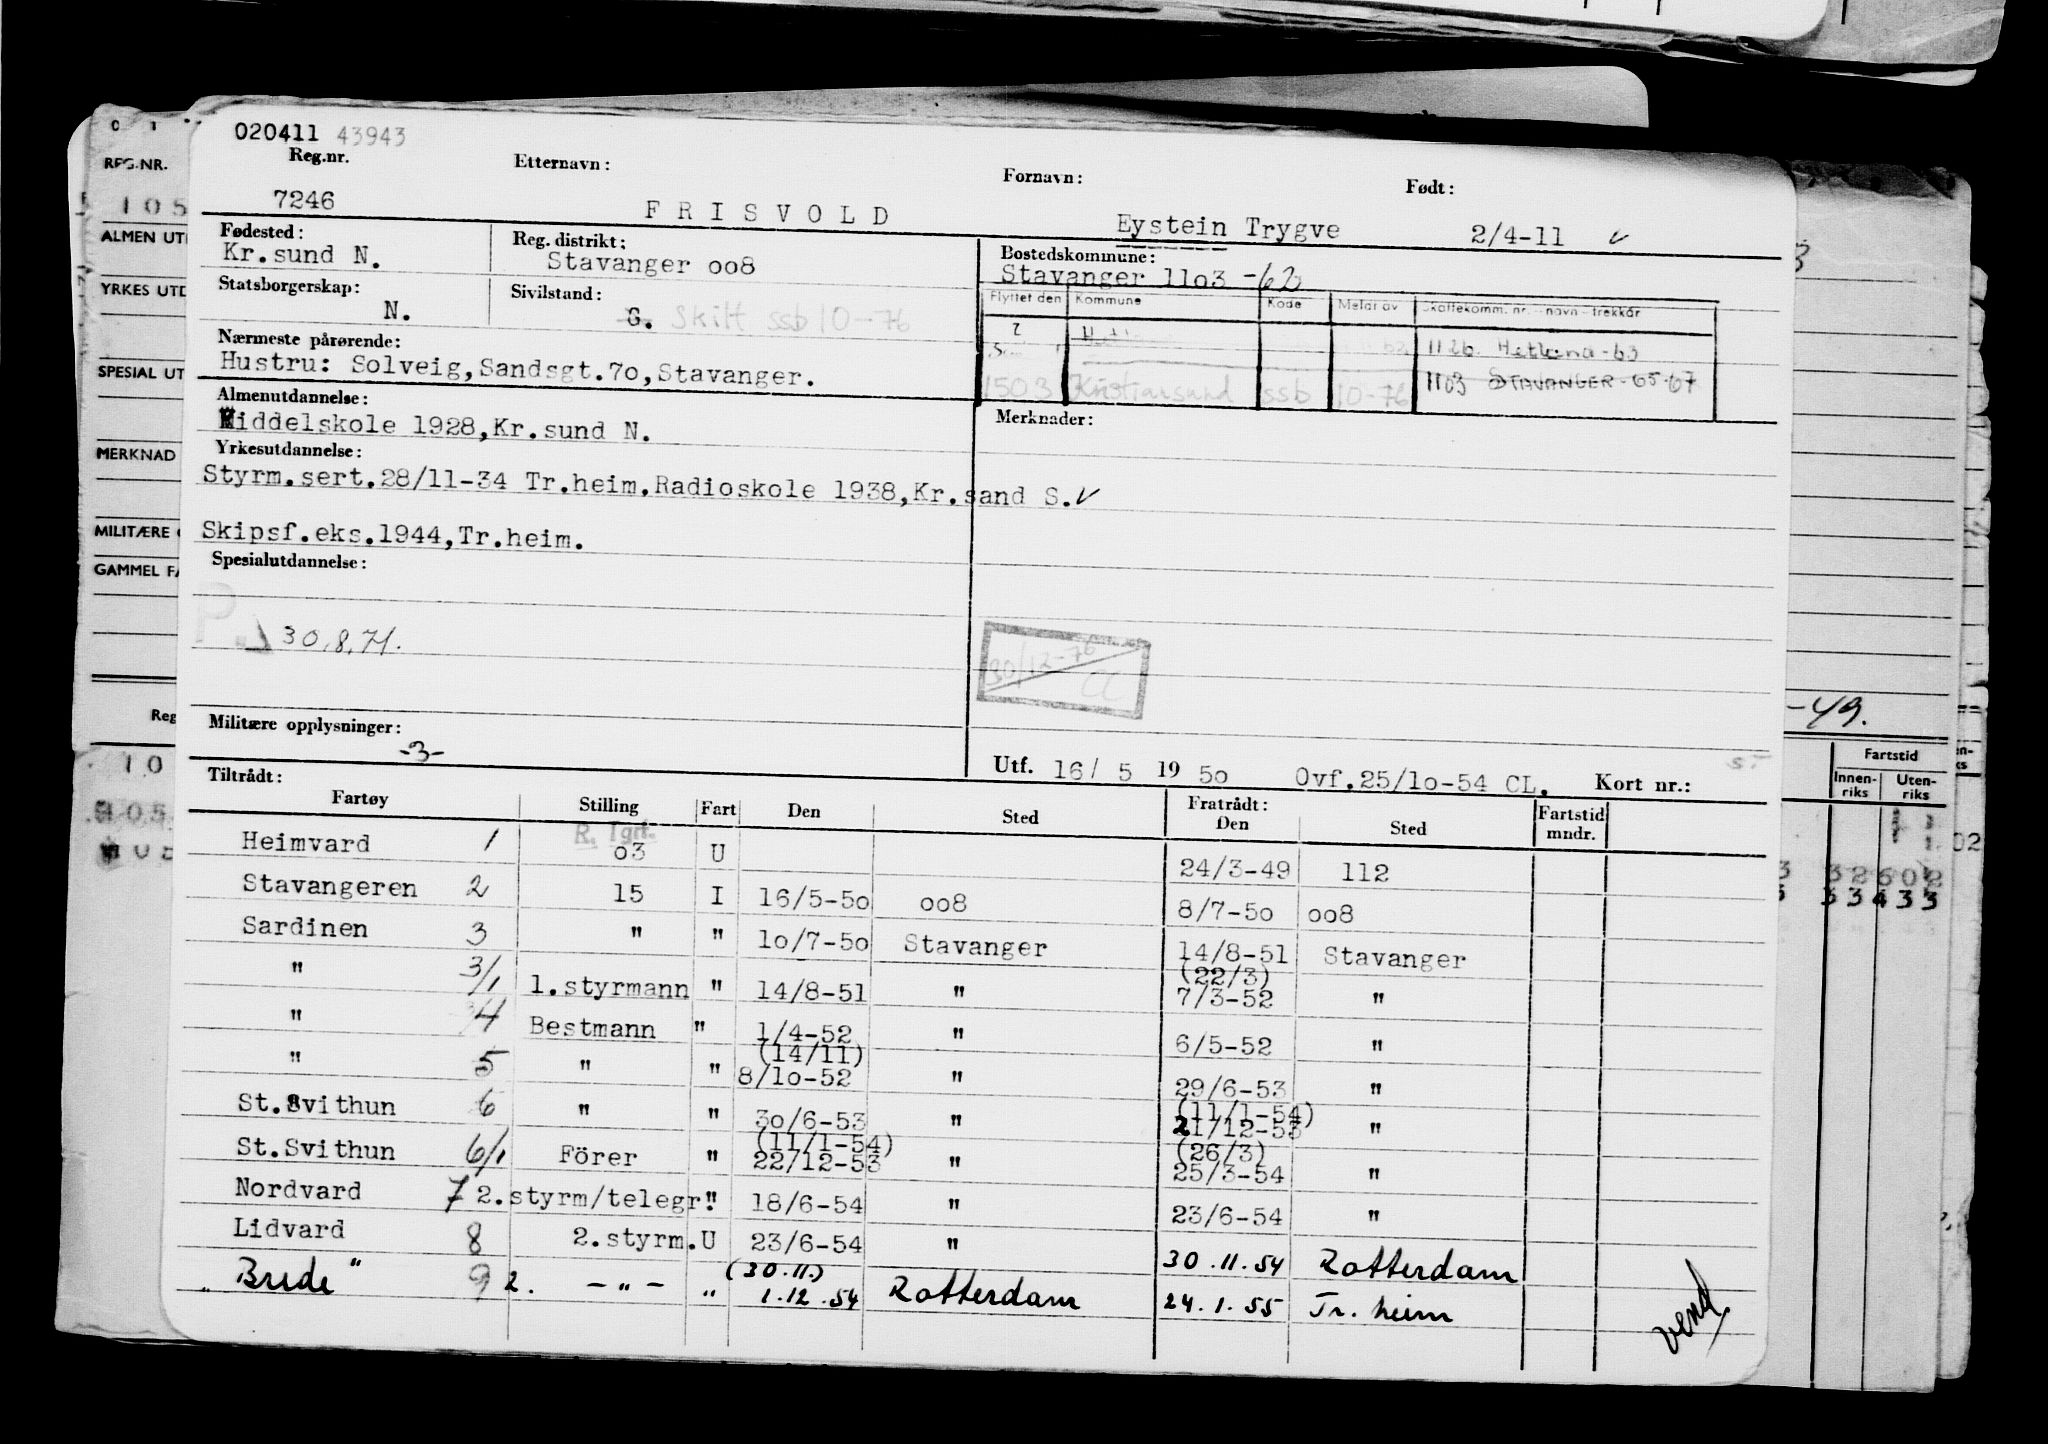 020411 43943
Reg.nr. Etternavn: Fornavn: Født:
7246 FRISVOLD Eystein Trygve 2/4-11 v
Fødested: Reg. distrikt: Bostedskommune:
Kr.sund N. Stavanger oo8 Stavanger 11o3 -62
Statsborgerskap: Sivilstand: Flyttet den Kommune Kode Meldt av Skattekomm. nr. - navn - trekkår
N. G. Skilt ssb 10-76
Nærmeste pårørende: 1126 Hetland-63
Hustru: Solveig,Sandsgt.7o,Stavanger. 1503 Kristiansund ssb 10-76 1103 STAVANGER-65-67
Almenutdannelse: Merknader:
Middelskole 1928,Kr.sund N.
Yrkesutdannelse:
Styrm.sert.28/11-34 Tr.heim.Radioskole 1938,Kr.sand S. v
Skipsf.eks.1944,Tr.heim.
Spesialutdannelse:
P. 30.8.71.
30/12-76
CC
Militære opplysninger:
-3-
Utf. 16/ 5 19 5o Ovf.25/1o-54 CL. Kort nr.:
Tiltrådt: Fratrådt:
Fartøy Stilling Fart Den Sted Den Sted Fartstid mndr.
R. Tgrf.
Heimvard 1 o3 U 24/3-49 112
Stavangeren 2 15 I 16/5-5o oo8 8/7-5o oo8
Sardinen 3 " " 1o/7-5o Stavanger 14/8-51 Stavanger
(22/3)
" 3/1 1.styrmann " 14/8-51 " 7/3-52 "
" 4 Bestmann " 1/4-52 " 6/5-52 "
(14/11)
" 5 " " 8/1o-52 " 29/6-53 "
(11/1-54)
St.Svithun 6 " " 3o/6-53 " 21/12-53 "
(11/1-54) (26/3)
St.Svithun 6/1 Förer " 22/12-53 " 25/3-54 "
Nordvard 7 2.styrm/telegr." 18/6-54 " 23/6-54 "
Lidvard 8 2.styrm.U 23/6-54 " 30.11.54 Rotterdam
(30.11.)
" Brede " 9 2. -"- " 1.12.54 Rotterdam 24.1.55 Tr. heim
vend
REG.NR.
105
ALMEN UT
YRKES UTD
SPESIAL UT
MERKNAD
MILITÆRE
GAMMEL FA
Reg
10
-49.
Fartstid
Innen-riks Uten-riks
32602
33433